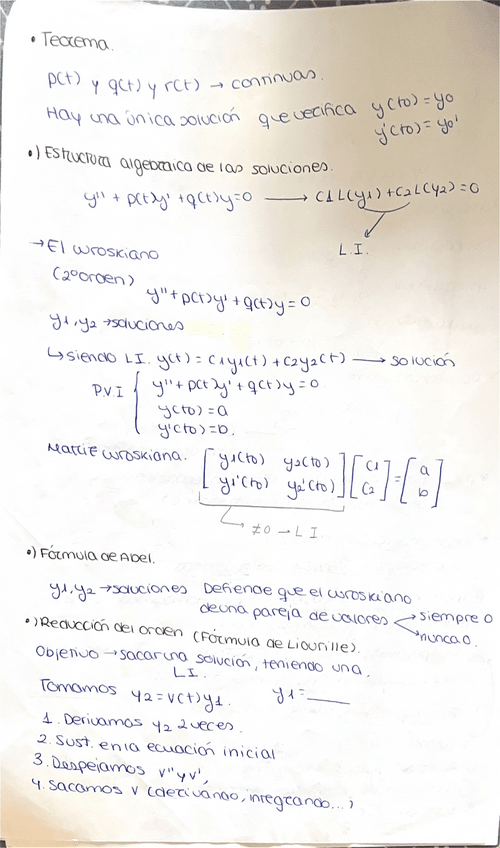 • Teorema.
p(t) y q(t) y r(t) → continuas.
Hay una única solución que verifica y(t0) = y0
y'(t0) = y0'
•) Estructura algebraica de las soluciones.
y'' + p(t)y' + q(t)y = 0 → C1 L(y1) + C2 L(y2) = 0
L.I.
→ El wroskiano
(2º orden)
y'' + p(t)y' + q(t)y = 0
y1, y2 → soluciones
↳ siendo L.I. y(t) = C1y1(t) + C2y2(t) → solución
P.V.I { y'' + p(t)y' + q(t)y = 0
y(t0) = a
y'(t0) = b.
Matriz wroskiana. [ y1(t0) y2(t0) ] [ C1 ] = [ a ]
[ y1'(t0) y2'(t0) ] [ C2 ] [ b ]
≠0 → L I.
•) Fórmula de Abel.
y1, y2 → soluciones Defiende que el wroskiano
de una pareja de valores → siempre 0
→ nunca 0.
•) Reducción del orden (Fórmula de Liourille).
Objetivo → sacar una solución, teniendo una.
L I.
Tomamos y2 = v(t)y1. y1 = ___
1. Derivamos y2 2 veces.
2. Sust. en la ecuación inicial
3. Despejamos v'' y v',
4. Sacamos v (derivando, integrando...)